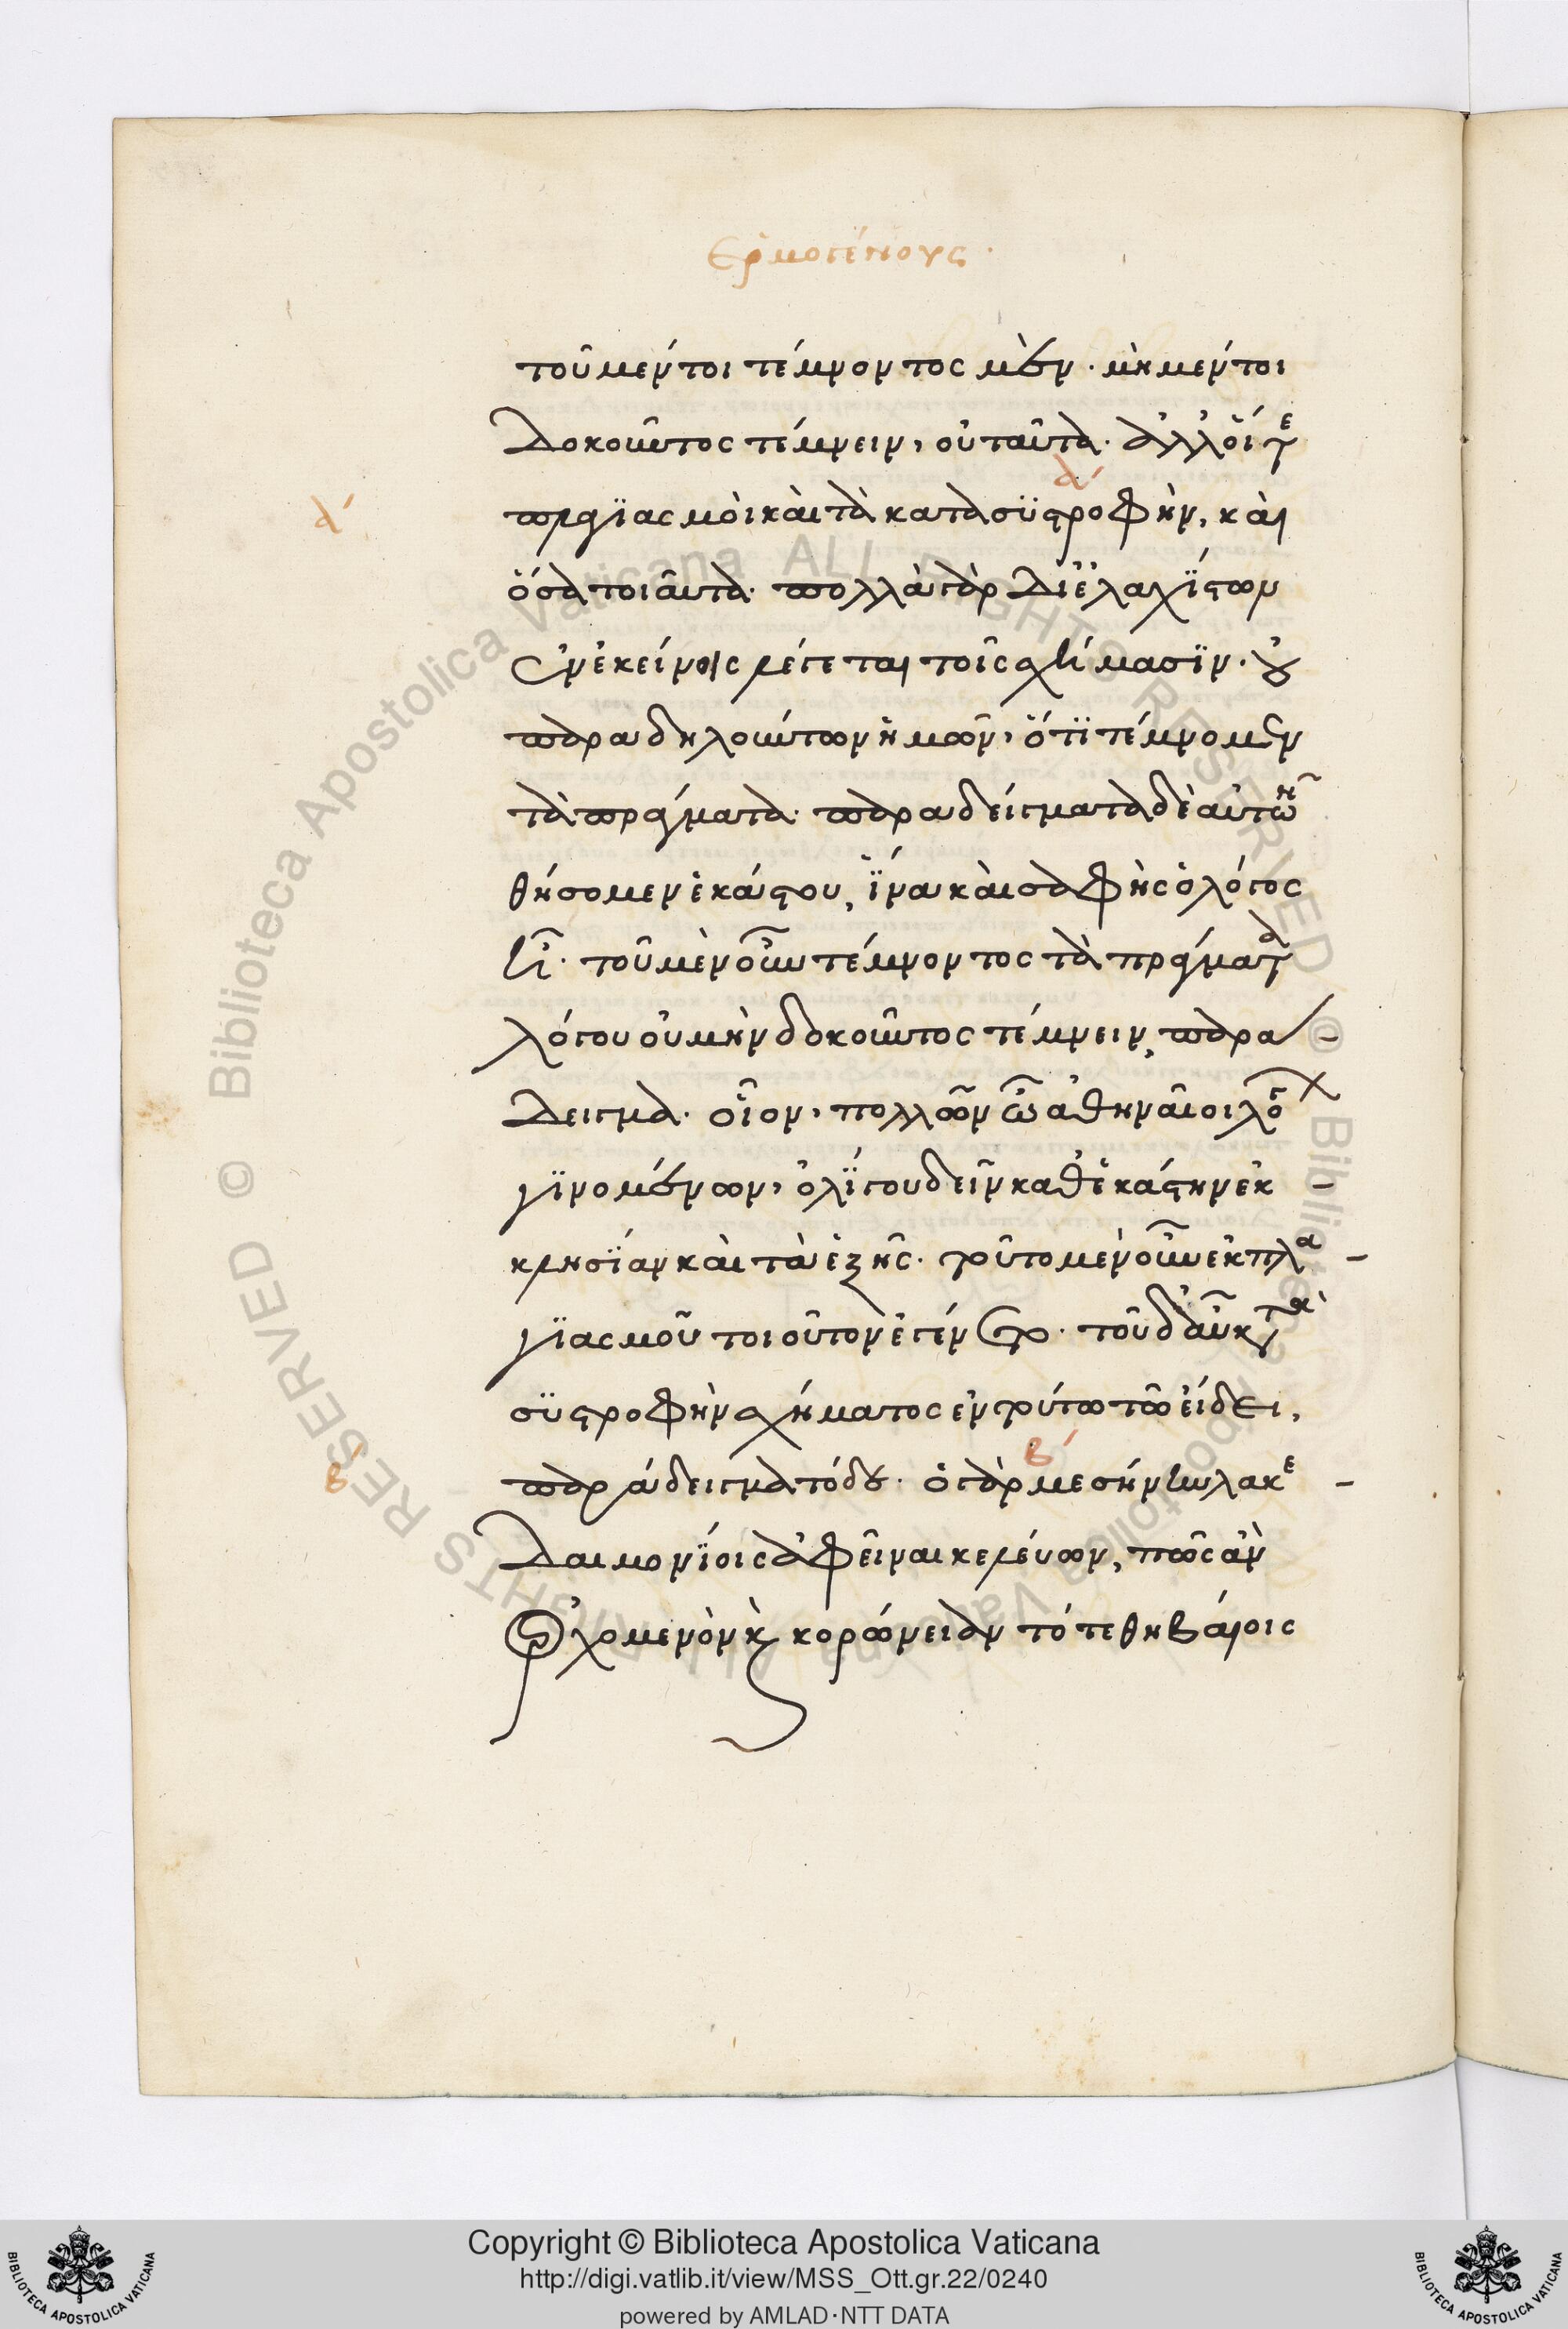 Ἑρμογένους ·
τοῦ μέντοι τέμνοντος μὲν · μὴ μέντοι
δοκοῦντος τέμνειν, οὐ ταῦτα · ἀλλ' οἵ τε
α΄
πλαγϊασμοὶ καὶ τὰ κατὰ συστροφὴν, καὶ
α΄
ὅσα τοιαῦτα · πολλὰ γὰρ δι' ἐλαχίστων
ἐν ἐκείνοις λέγεται τοῖς σχήμασϊν · οὐ
παραδηλούντων ἡμῶν, ὅτϊ τέμνομεν
τὰ πράγματα · παραδείγματα δὲ αὐτῶν
θήσομεν ἑκάστου, ἵνα καὶ σαφὴς ὁ λόγος
ᾖ · τοῦ μὲν οὖν τέμνοντος τὰ πράγματα
λόγου οὐ μὴν δοκοῦντος τέμνειν, παρά-
δειγμα · οἷον, πολλῶν ὦ ἀθηναῖοι λό
γϊνομένων, ὀλίγου δεῖν καθ' ἑκάστην ἐκ-
κλησίαν καὶ τὰ ἑξῆς · τοῦτο μὲν οὖν ἐκ πλα-
γϊασμοῦ τοιοῦτον ἐγένετο · τοῦ δ' αὖ κατὰ
συστροφὴν σχήματος ἐν τούτω τῶ εἴδει,
β΄
παράδειγμα τόδε · ὁ γὰρ μεσήνην λακε-
β΄
δαιμονίοις ἀφεῖναι κελεύων, πῶς ἂν
ὀρχομενὸν καὶ κορώνειαν τότε θηβαίοις
Copyright © Biblioteca Apostolica Vaticana
http://digi.vatlib.it/view/MSS_Ott.gr.22/0240
powered by AMLAD·NTT DATA